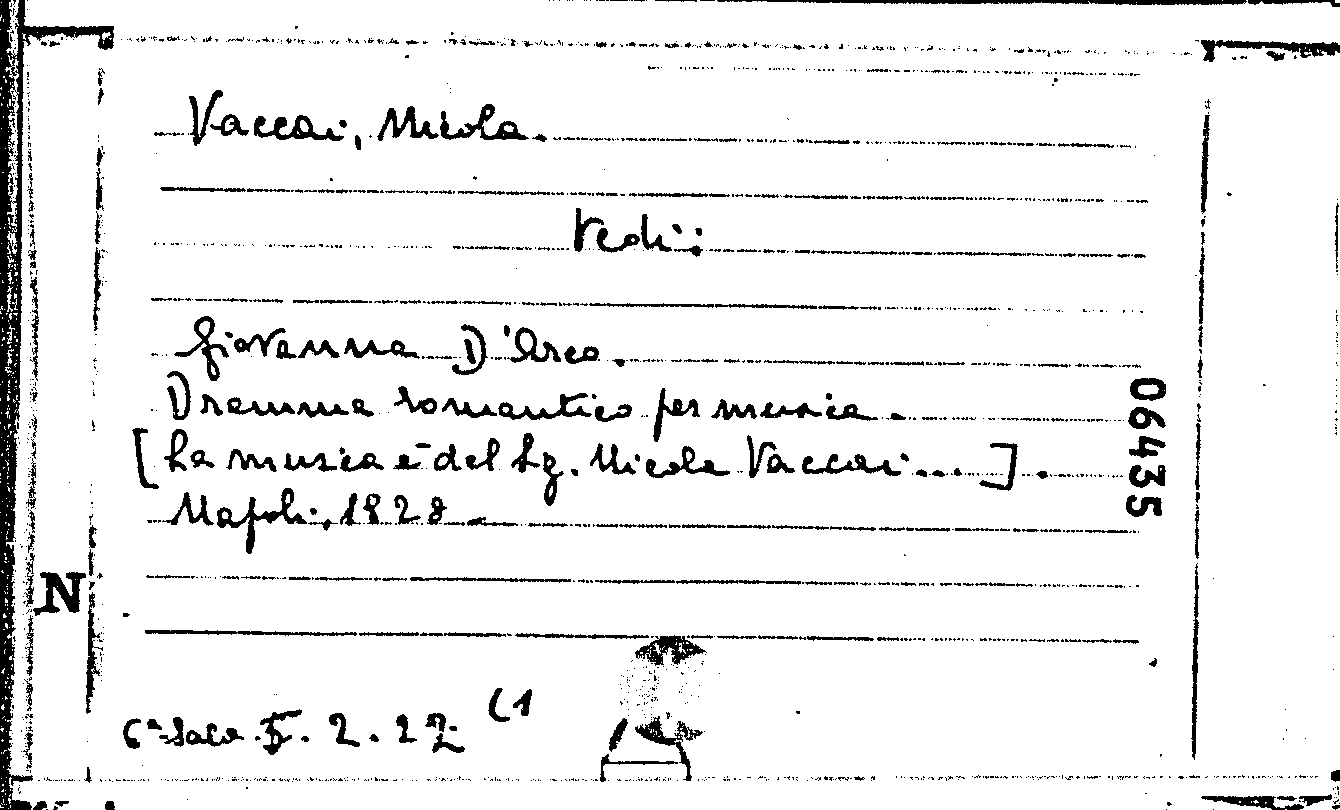 Vaccai, Nicola.
Vedi:
Giovanna D'Arco.
Dramma romantico per musica.
[La musica è del Sg. Nicola Vaccai...].
Napoli, 1828
06435
N
6ª Sala. 2.27 (1